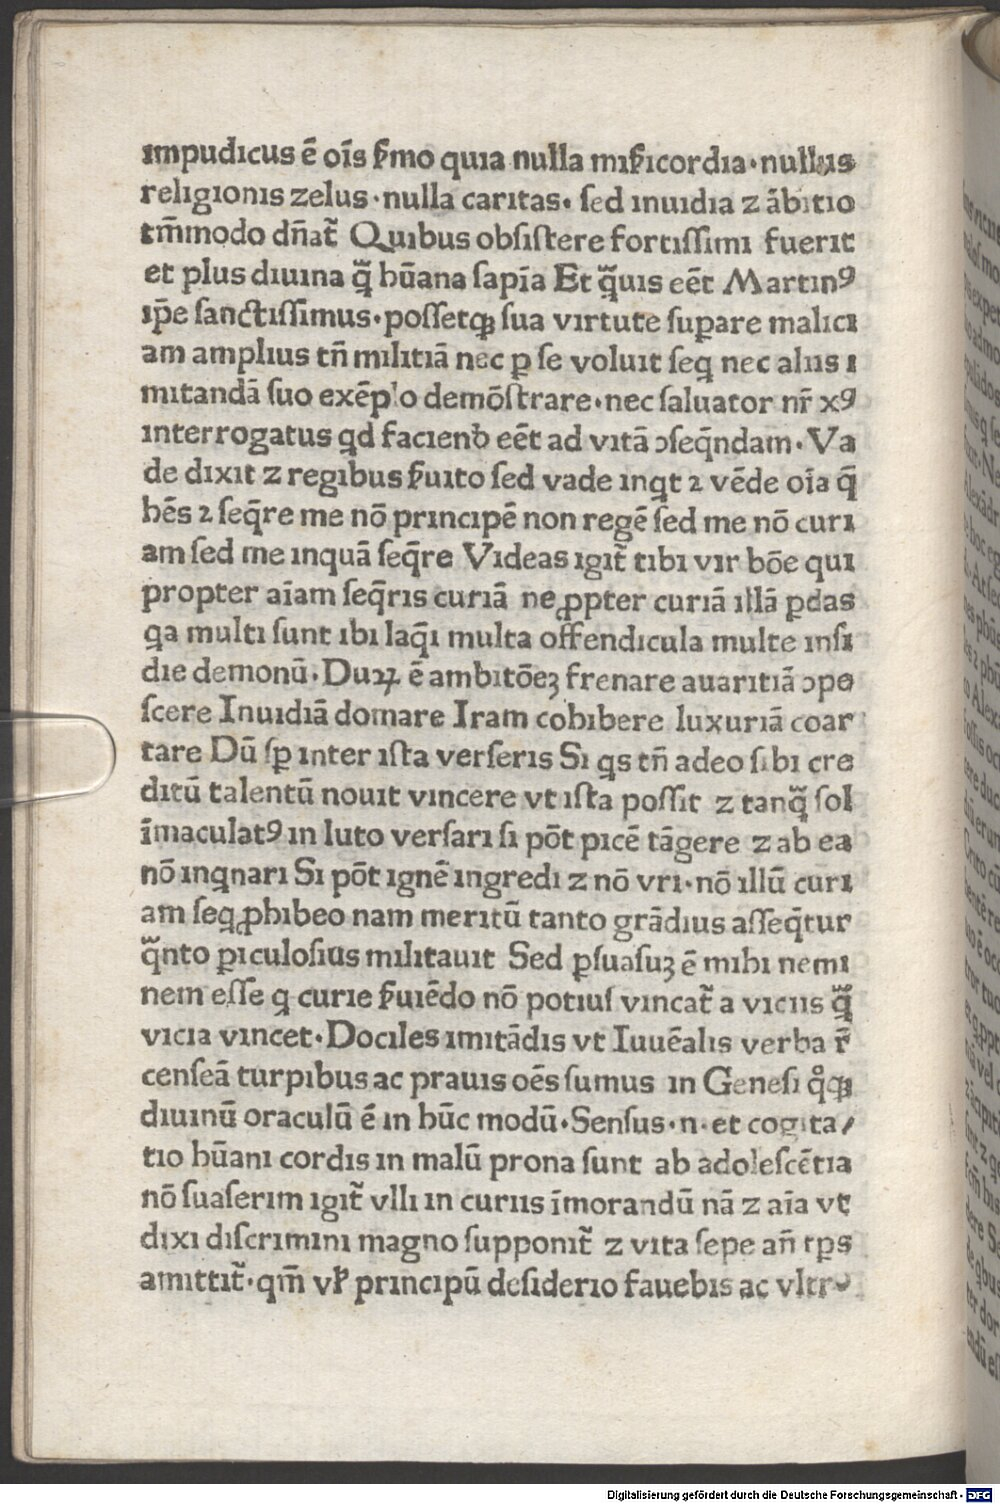 impudicus ē oı̄s ṕmo quia nulla miẜicordia·nullus
religionis zelus·nulla caritas· ſed inuidia ⁊ ābitio
tm̄modo dn̄at᷑ Quibus obſiſtere fortiſſimi fuerit
et plus diuina ꝙ̄ hūana ſapīa Et ꝙ̄uis eēt Martinꝰ
ip̄e ſanctiſſimus·poſſetqꝫ ſua virtute ſuꝑare malici
am amplius tn̄ militiā nec ꝑ ſe voluit ſeq nec aliis i
mitandā ſuo exēplo demōſtrare·nec ſaluator nr̄ xꝰ
interrogatus qd faciend̄ eēt ad vitā ↄſeq̄ndam· Va
de dixit ⁊ regibus ẜuito ſed vade inqt ⁊ vēde oı̄a q̄
hēs ⁊ ſeq̄re me nō principē non regē ſed me nō curi
am ſed me inquā ſeq̄re Videas igit᷑ tibi vir bōe qui
propter aı̄am ſeq̄ris curiā ne ꝓpter curiā illā ꝑdas
qa multi ſunt ibi laq̄i multa offendicula multe inſi
die demonū· Duꝝ ē ambitōeꝫ frenare auaritiā ↄpe
ſcere Inuidiā domare Iram cohibere luxuriā coar
tare Dū ſꝑ inter iſta verſeris Si qs tn̄ adeo ſibi cre
ditū talentū nouit vincere vt iſta poſſit ⁊ tanꝙ̄ ſol
īmaculatꝰ in luto verſari ſi pōt picē tāgere ⁊ ab ea
nō inqnari Si pōt ignē ingredi ⁊ nō vri·nō illū curi
am ſeq ꝓhibeo nam meritū tanto grādius aſſeq̄tur
q̄nto ꝑiculoſius militauit Sed ꝑſuaſuꝫ ē mihi nemi
nem eſſe q curie ẜuiēdo nō potiuſ vincat᷑ a viciis ꝙ̄
vicia vincet·Dociles imitādis vt Iuuēalis verba r̄
cenſeā turpibus ac prauis oēs ſumus in Geneſi qͦqꝫ
diuinū oraculū ē in hūc modū·Senſus·n·et cogita/
tio hūani cordis in malū prona ſunt ab adoleſcētia
nō ſuaſerim igit᷑ vlli in curiis īmorandū nā ⁊ aı̄a vt
dixi diſcrimini magno ſupponit᷑ ⁊ vita ſepe an̄ tp̄s
amittit᷑·qm̄ vł principū deſiderio fauebis ac vltr